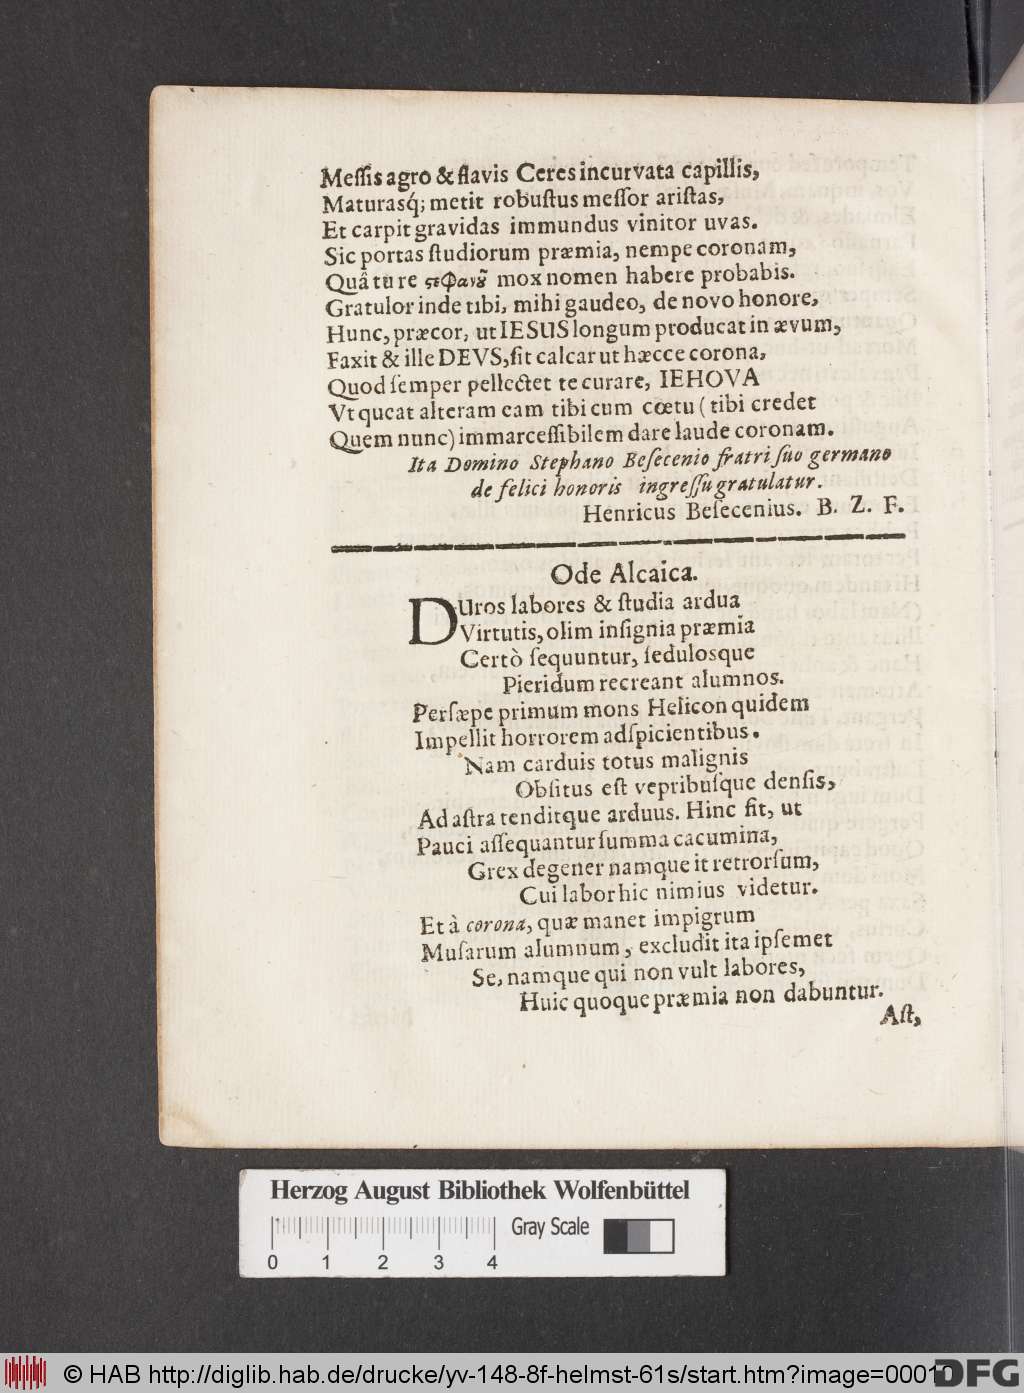 Meſſis agro & flavis Ceres incurvata capillis,
Maturasq́; metit robuſtus meſſor ariſtas,
Et carpit gravidas immundus vinitor uvas.
Sic portas ſtudiorum præmia, nempe coronam,
Quâ tu re ϛεφανȣ͂ mox nomen habere probabis.
Gratulor inde tibi, mihi gaudeo, de novo honore,
Hunc, præcor, ut IESUS longum producat in ævum,
Faxit & ille DEVS, ſit calcar ut hæcce corona,
Quod ſemper pellectet te curare, IEHOVA
Vt queat alteram eam tibi cum cœtu ( tibi credet
Quem nunc) immarceſſibilem dare laude coronam.
Ita Domino Stephano Beſecenio fratri ſuo germano
de felici honoris ingreſſu gratulatur.
Henricus Beſecenius. B. Z. F.
Ode Alcaica.
DUros labores & ſtudia ardua
Virtutis, olim inſignia præmia
Certò ſequuntur, ſedulosque
Pieridum recreant alumnos.
Perſæpe primum mons Helicon quidem
Impellit horrorem adſpicientibus.
Nam carduis totus malignis
Obſitus eſt vepribuſque denſis,
Ad aſtra tenditque arduus. Hinc fit, ut
Pauci aſſequantur ſumma cacumina,
Grex degener namque it retrorſum,
Cui labor hic nimius videtur.
Et à corona, quæ manet impigrum
Muſarum alumnum, excludit ita ipſemet
Se, namque qui non vult labores,
Huic quoque præmia non dabuntur.
Aſt,
Herzog August Bibliothek Wolfenbüttel
Gray Scale
0 1 2 3 4
© HAB http://diglib.hab.de/drucke/yv-148-8f-helmst-61s/start.htm?image=00010
DFG